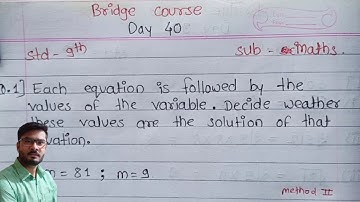 Bridge course
Day 40
Std - 9th
Sub - Maths.
Q.1] Each equation is followed by the
values of the variable. Decide weather
these values are the solution of that
equation.
m = 81 ; m = 9
method II